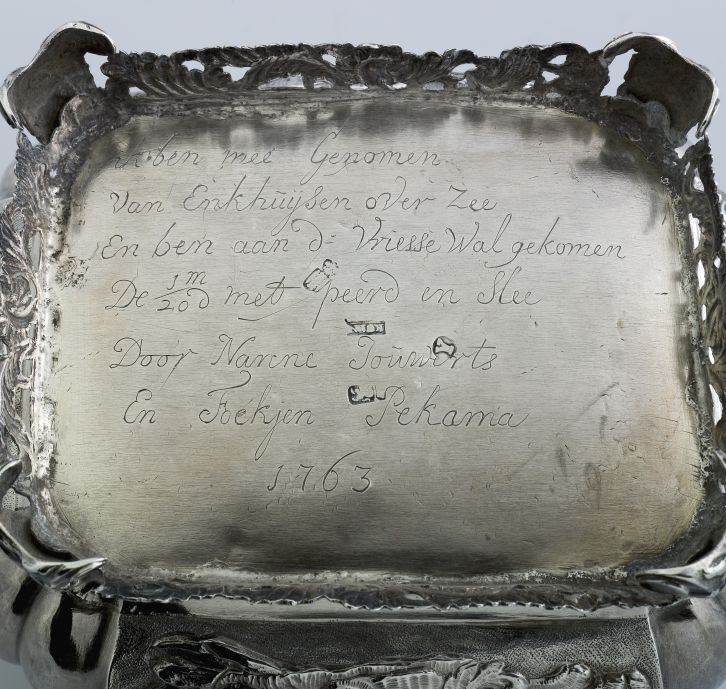 ik ben mee Genomen
Van Enkhuijsen over Zee
En ben aan d= Vriesse Wal gekomen
De 1m/20d met peerd en Slee
Door Nanne Jouwerts
En Foekjen Pekama
1763